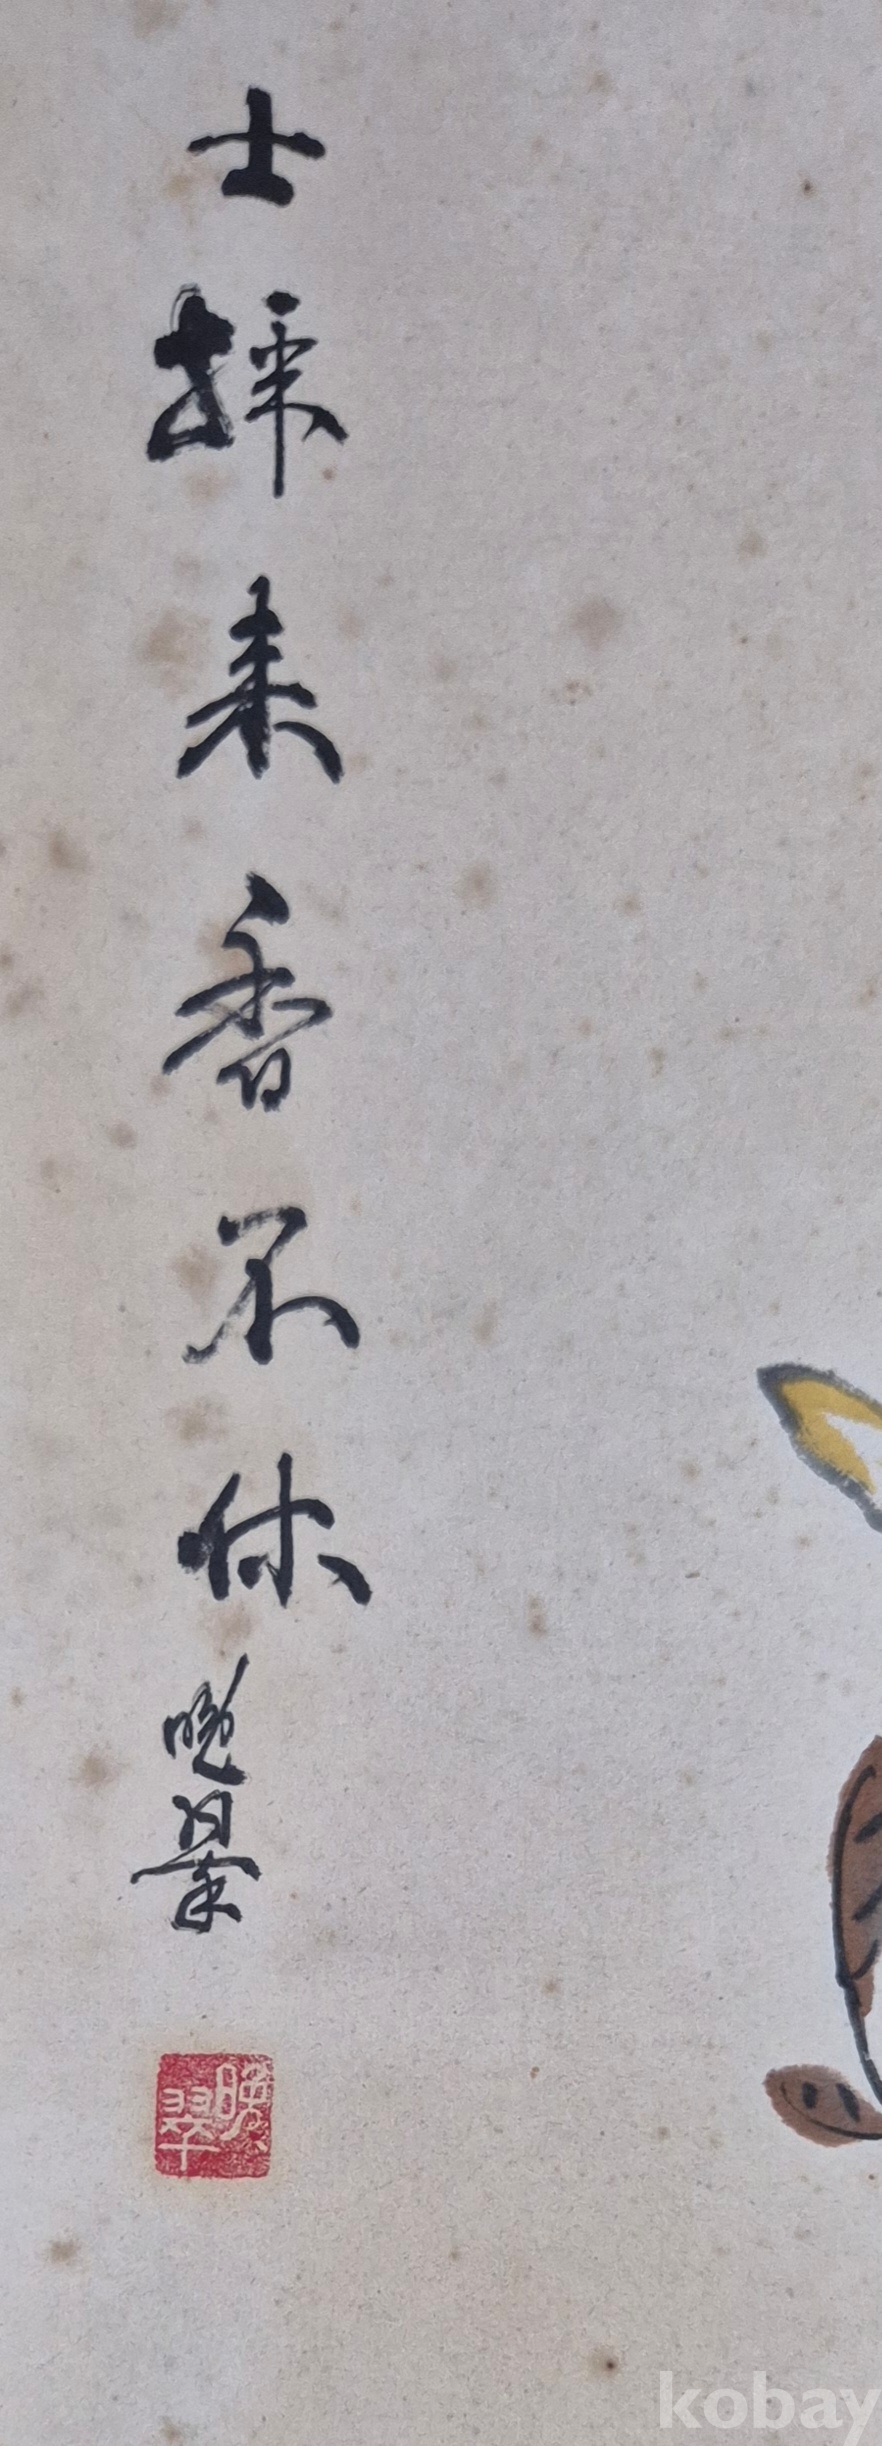 士採来香不休
晩翠
晩翠
kobay